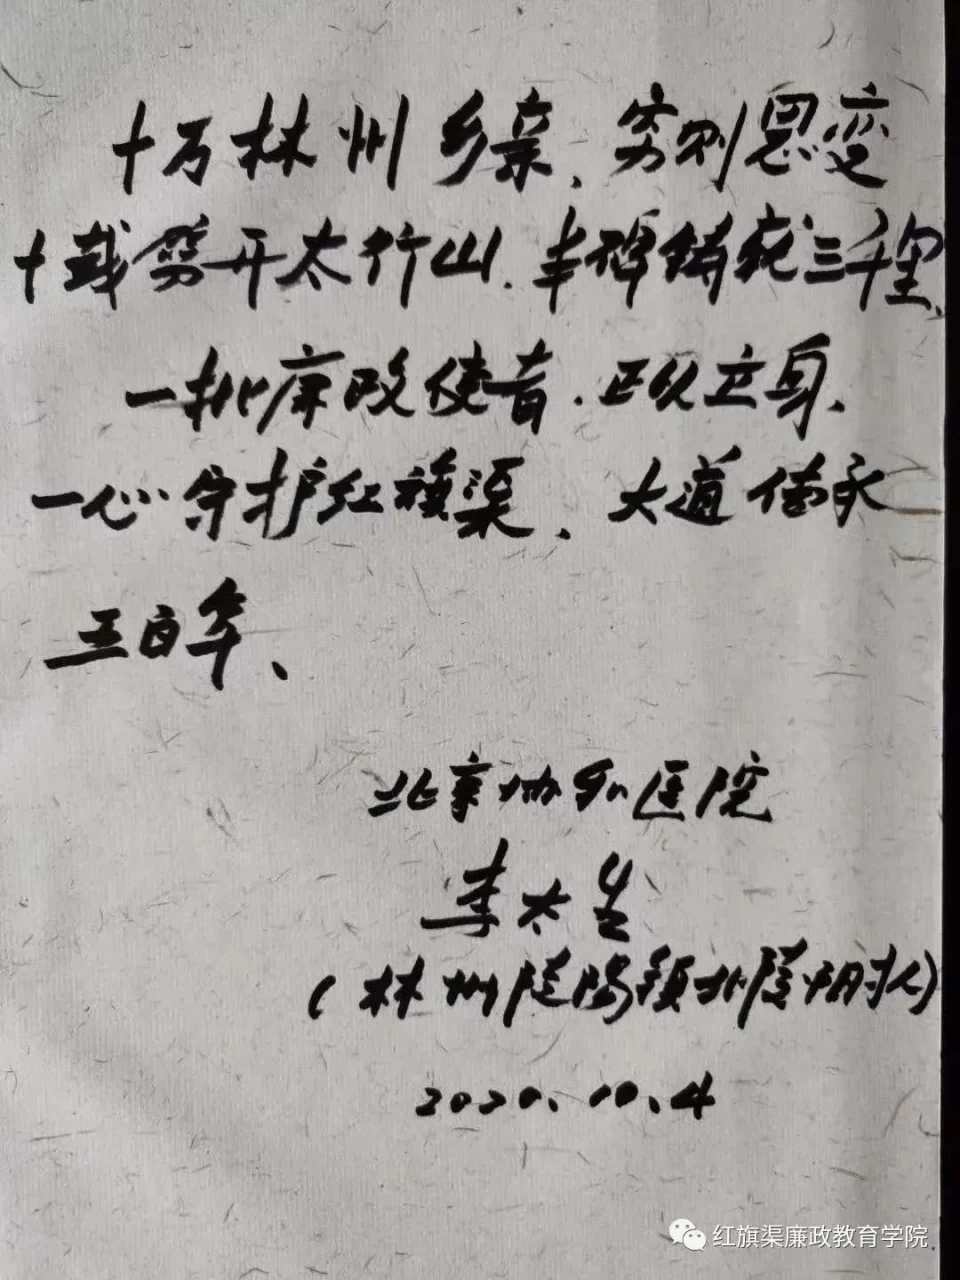 十万林州乡亲、穷则思变
十载劈开太行山.丰碑铺就三千里、
一批廉政使者.正以立身.
一心守护红旗渠、大道传承
五百年、
北京协和医院
李太生
(林州陵阳镇北陵阳村人)
2020.10.4
红旗渠廉政教育学院